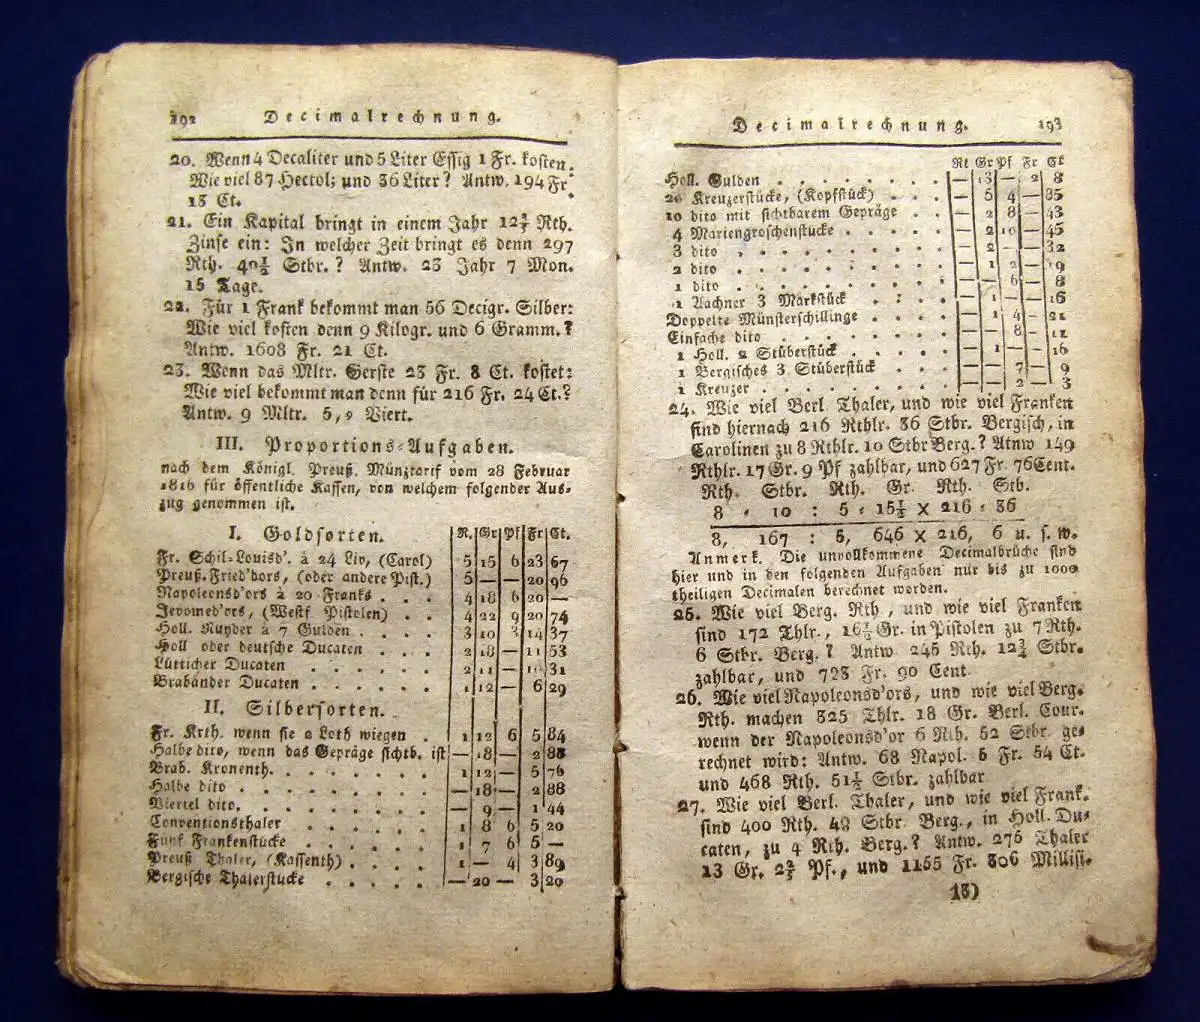 192 Decimalrechnung.
20. Wenn 4 Decaliter und 5 Liter Essig 1 Fr. kosten.
Wie viel 87 Hectol; und 36 Liter? Antw. 194 Fr
13 Ct.
21. Ein Kapital bringt in einem Jahr 12⅔ Rth.
Zinse ein: In welcher Zeit bringt es denn 297
Rth. 40½ Stbr.? Antw. 23 Jahr 7 Mon.
15 Tage.
22. Für 1 Frank bekommt man 56 Decigr. Silber:
Wie viel kosten denn 9 Kilogr. und 6 Gramm.?
Antw. 1608 Fr. 21 Ct.
23. Wenn das Mltr. Gerste 23 Fr. 8 Ct. kostet:
Wie viel bekommt man denn für 216 Fr. 24 Ct.?
Antw. 9 Mltr. 5,9 Viert.
III. Proportions-Aufgaben.
nach dem Königl. Preuß. Münztarif vom 28 Februar
1816 für öffentliche Kassen, von welchem folgender Aus-
zug genommen ist.
I. Goldsorten. R. Gr Pf Fr Ct.
Fr. Schil-Louisd'. à 24 Liv, (Carol) 5 15 6 23 67
Preuß. Fried'dors, (oder andere Pist.) 5 — — 20 96
Napoleonsd'ors à 20 Franks . . . 4 18 6 20 —
Jeromed'ors, (Westf Pistolen) . . 4 22 9 20 74
Holl. Ruyder à 7 Gulden . . . . 3 10 3 14 37
Holl oder deutsche Ducaten . . . 2 18 — 11 53
Lütticher Ducaten . . . . . 2 11 — 31
Brabänder Ducaten . . . . . . 1 12 — 6 29
II. Silbersorten.
Fr. Krth. wenn sie 2 Loth wiegen . 1 12 6 5 84
Halbe dito, wenn das Gepräge sichtb. ist — 18 — 2 88
Brab. Kronenth. . . . . . . . 1 12 — 5 76
Halbe dito . . . . . . . . . — 18 — 2 88
Viertel dito. . . . . . . . . — 9 — 1 44
Conventionsthaler . . . . . . 1 8 6 5 20
Fünf Frankenstücke . . . . . . 1 7 6 5 —
Preuß Thaler, (Kassenth) . . . . 1 — 4 3 89
Bergische Thalerstücke . . . . . — 20 — 3 20
Decimalrechnung. 193
Rt Gr Pf Fr Ct
Holl. Gulden . . . . . . . . — 13 — 2 8
20 Kreuzerstücke, (Kopfstück) . . . — 5 4 — 85
10 dito mit sichtbarem Gepräge . . — 2 8 — 43
4 Mariengroschenstücke . . . . . — 2 10 — 45
3 dito . . . . . . . . . — 2 — — 32
2 dito . . . . . . . . . — 1 2 — 19
1 dito . . . . . . . . . — — 6 — 8
1 Aachner 3 Markstück . . . . — 1 — — 16
Doppelte Münsterschillinge . . . . — 1 4 — 21
Einfache dito . . . . . . . — — 8 — 11
1 Holl. 2 Stüberstück . . . . . — 1 — — 16
1 Bergisches 3 Stüberstück . . . — — 7 — 9
1 Kreuzer . . . . . . . . . — — 2 — 3
24. Wie viel Berl. Thaler, und wie viel Franken
sind hiernach 216 Rthlr. 36 Stbr. Bergisch, in
Carolinen zu 8 Rthlr. 10 Stbr Berg.? Atnw 149
Rthlr. 17 Gr. 9 Pf zahlbar, und 627 Fr. 76 Cent.
Rth. Stbr. Rth. Gr. Rth. Stb.
8 , 10 : 5 , 15½ × 216 , 36
8, 167 : 5, 646 × 216, 6 u. s. w.
Anmerk. Die unvollkommene Decimalbrüche sind
hier und in den folgenden Aufgaben nur bis zu 1000
theiligen Decimalen berechnet worden.
25. Wie viel Berg. Rth , und wie viel Franken
sind 172 Thlr., 16½ Gr. in Pistolen zu 7 Rth.
6 Stbr. Berg.? Antw 245 Rth. 12¾ Stbr.
zahlbar, und 723 Fr. 90 Cent.
26. Wie viel Napoleonsd'ors, und wie viel Berg.
Rth. machen 325 Thlr. 18 Gr. Berl. Cour.
wenn der Napoleonsd'or 6 Rth. 52 Stbr. ge-
rechnet wird: Antw. 68 Napol. 5 Fr. 54 Ct.
und 468 Rth. 51½ Stbr. zahlbar
27. Wie viel Berl. Thaler, und wie viel Frank.
sind 400 Rth. 48 Stbr. Berg., in Holl. Du-
caten, zu 4 Rth. Berg.? Antw. 275 Thaler
13 Gr. 2⅖ Pf., und 1155 Fr. 306 Millisi.
13)